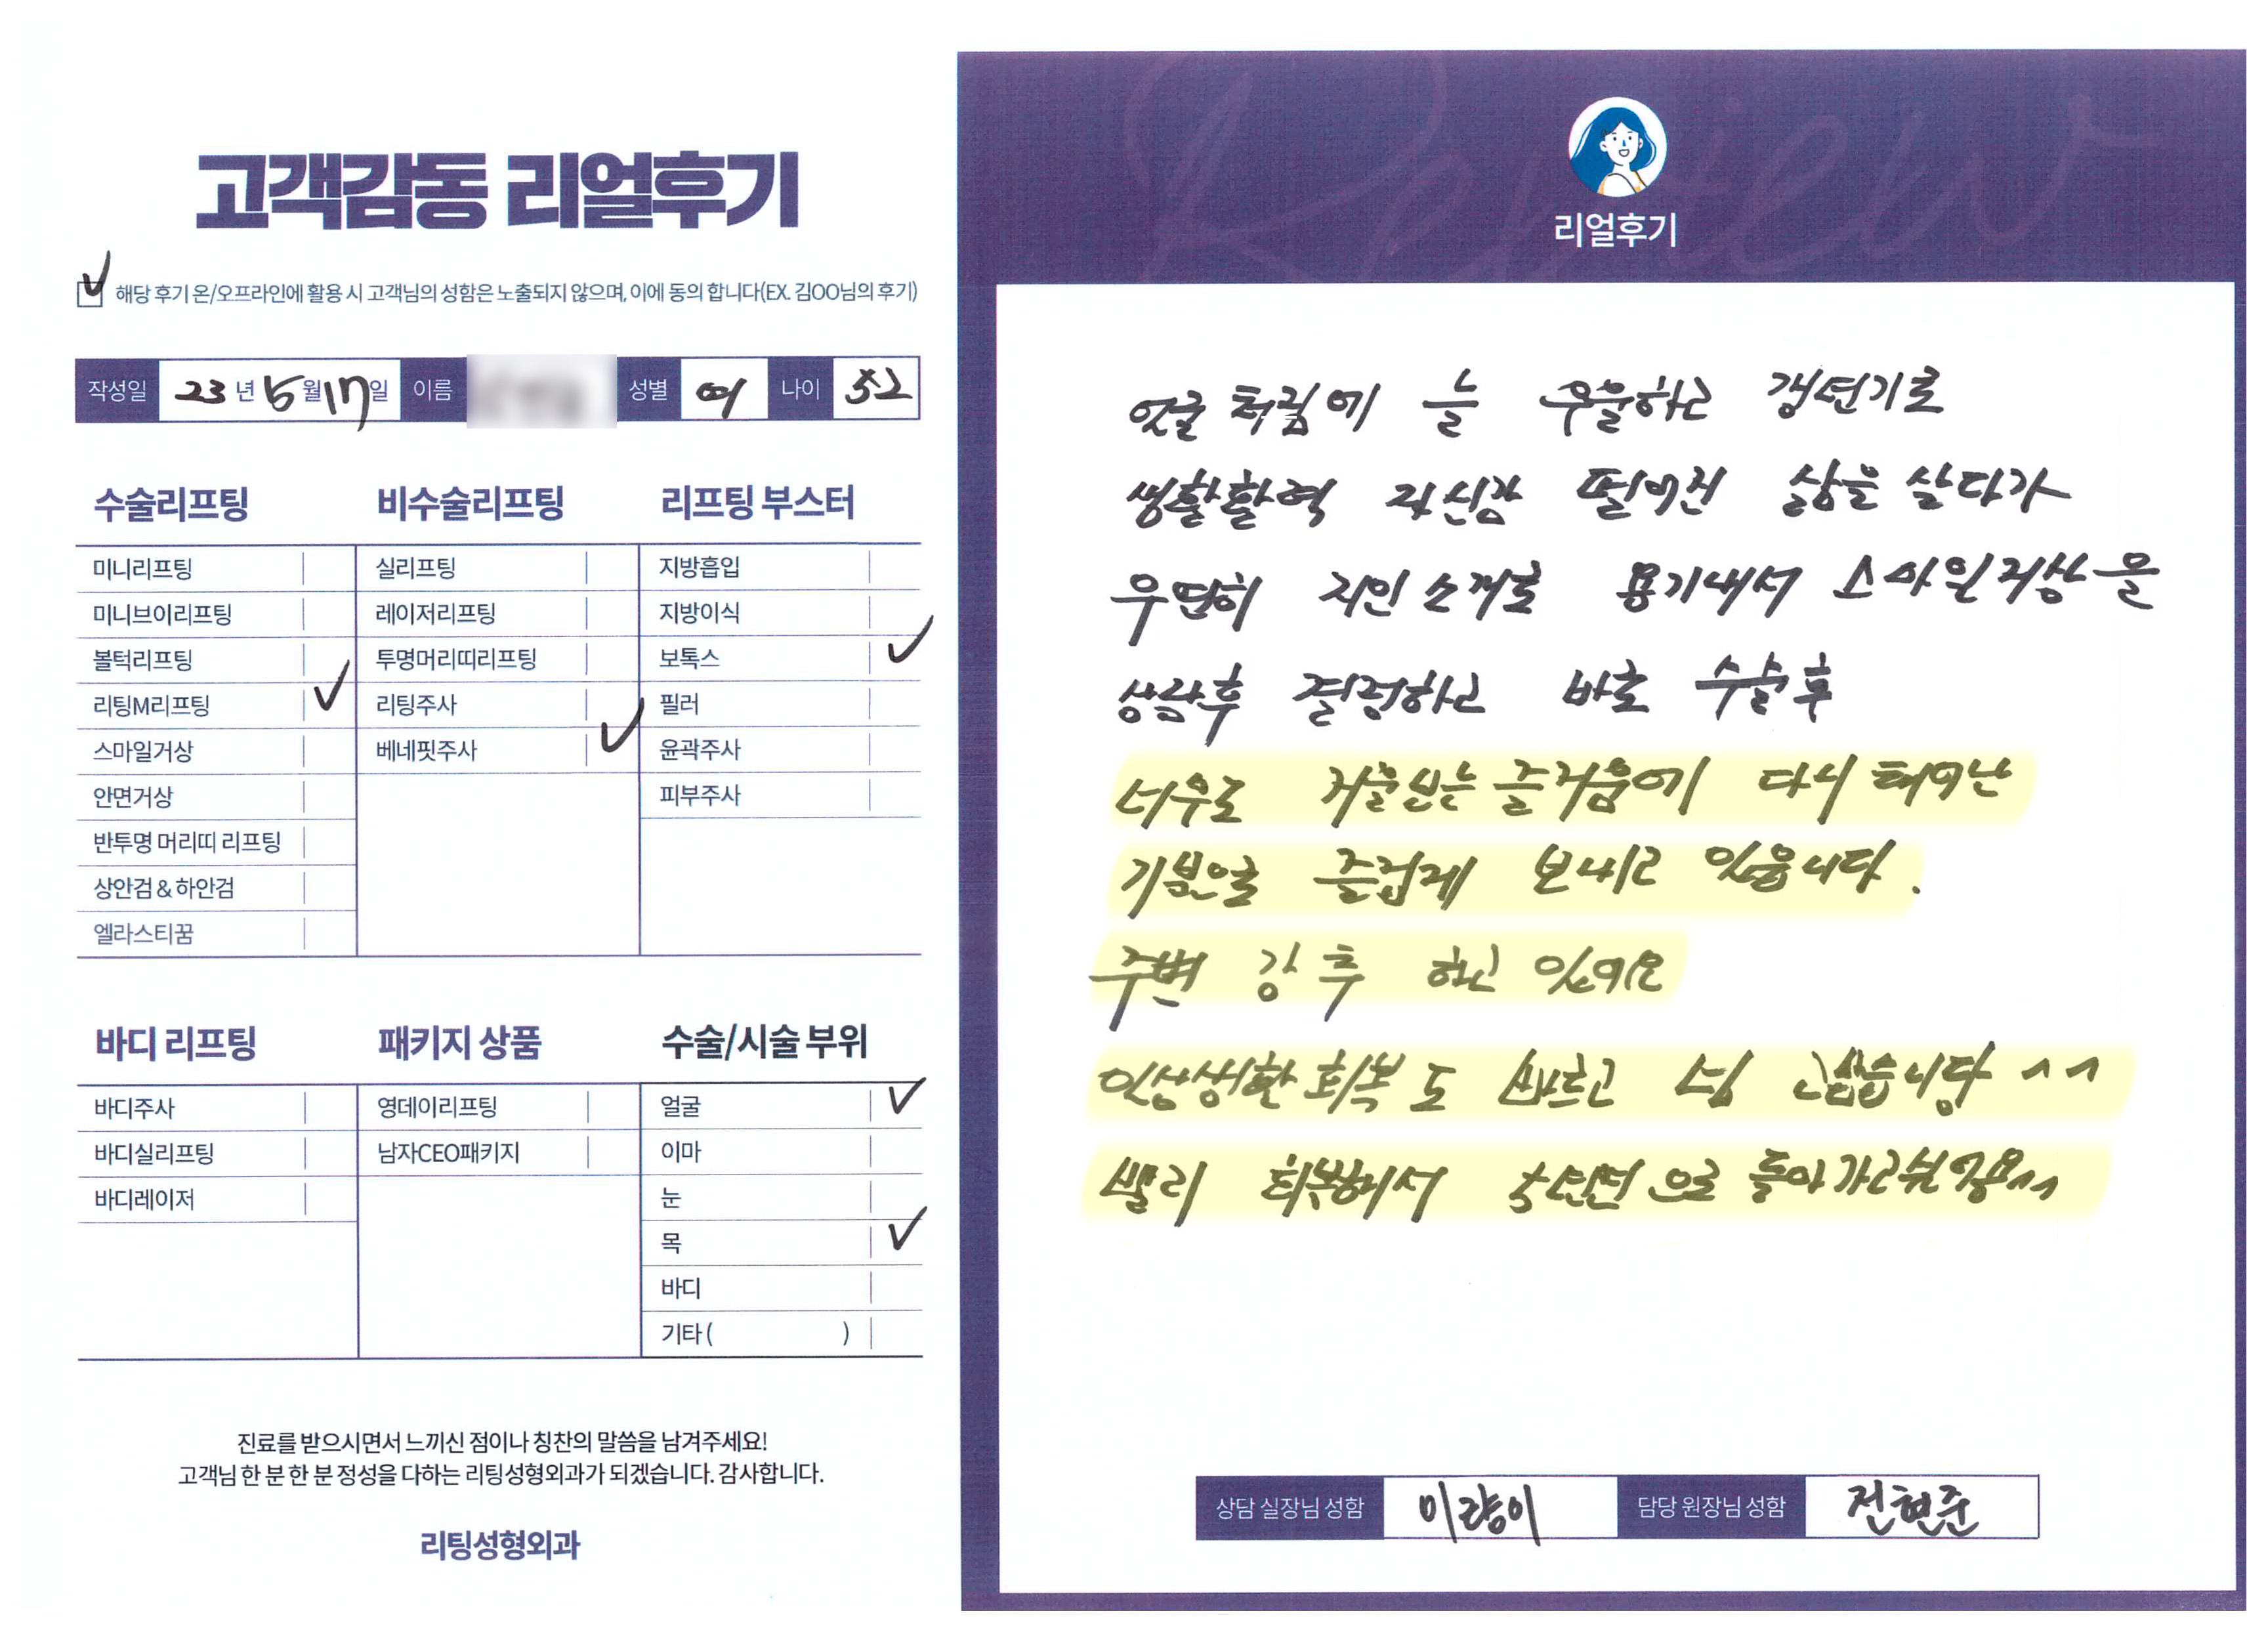 고객감동 리얼후기
해당 후기 온/오프라인에 활용 시 고객님의 성함은 노출되지 않으며, 이에 동의 합니다(EX. 김OO님의 후기)
작성일 23년 5월 17일 이름 성별 여 나이 52
수술리프팅
미니리프팅
미니브이리프팅
볼턱리프팅
리팅M리프팅
스마일거상
안면거상
반투명 머리띠 리프팅
상안검 & 하안검
엘라스티꿈
비수술리프팅
실리프팅
레이저리프팅
투명머리띠리프팅
리팅주사
베네핏주사
리프팅 부스터
지방흡입
지방이식
보톡스
필러
윤곽주사
피부주사
바디 리프팅
바디주사
바디실리프팅
바디레이저
패키지 상품
영데이리프팅
남자CEO패키지
수술/시술 부위
얼굴
이마
눈
목
바디
기타 ( )
진료를 받으시면서 느끼신 점이나 칭찬의 말씀을 남겨주세요!
고객님 한 분 한 분 정성을 다하는 리팅성형외과가 되겠습니다. 감사합니다.
리팅성형외과
Review
리얼후기
얼굴 처짐에 늘 우울하고 갱년기로
생활활력 자신감 떨어진 삶을 살다가
우연히 지인소개로 용기내서 스마일거상을
상담후 결정하고 바로 수술후
너무도 거울보는 즐거움에 다시 태어난
기분을 즐겁게 보내고 있읍니다.
주변 강추 하고 있어요
일상생활 회복도 빠르고 넘 고맙습니당 ^^
빨리 회복해서 으로 돌아가고싶어용^^
상담 실장님 성함 이량이 담당 원장님 성함 전현준